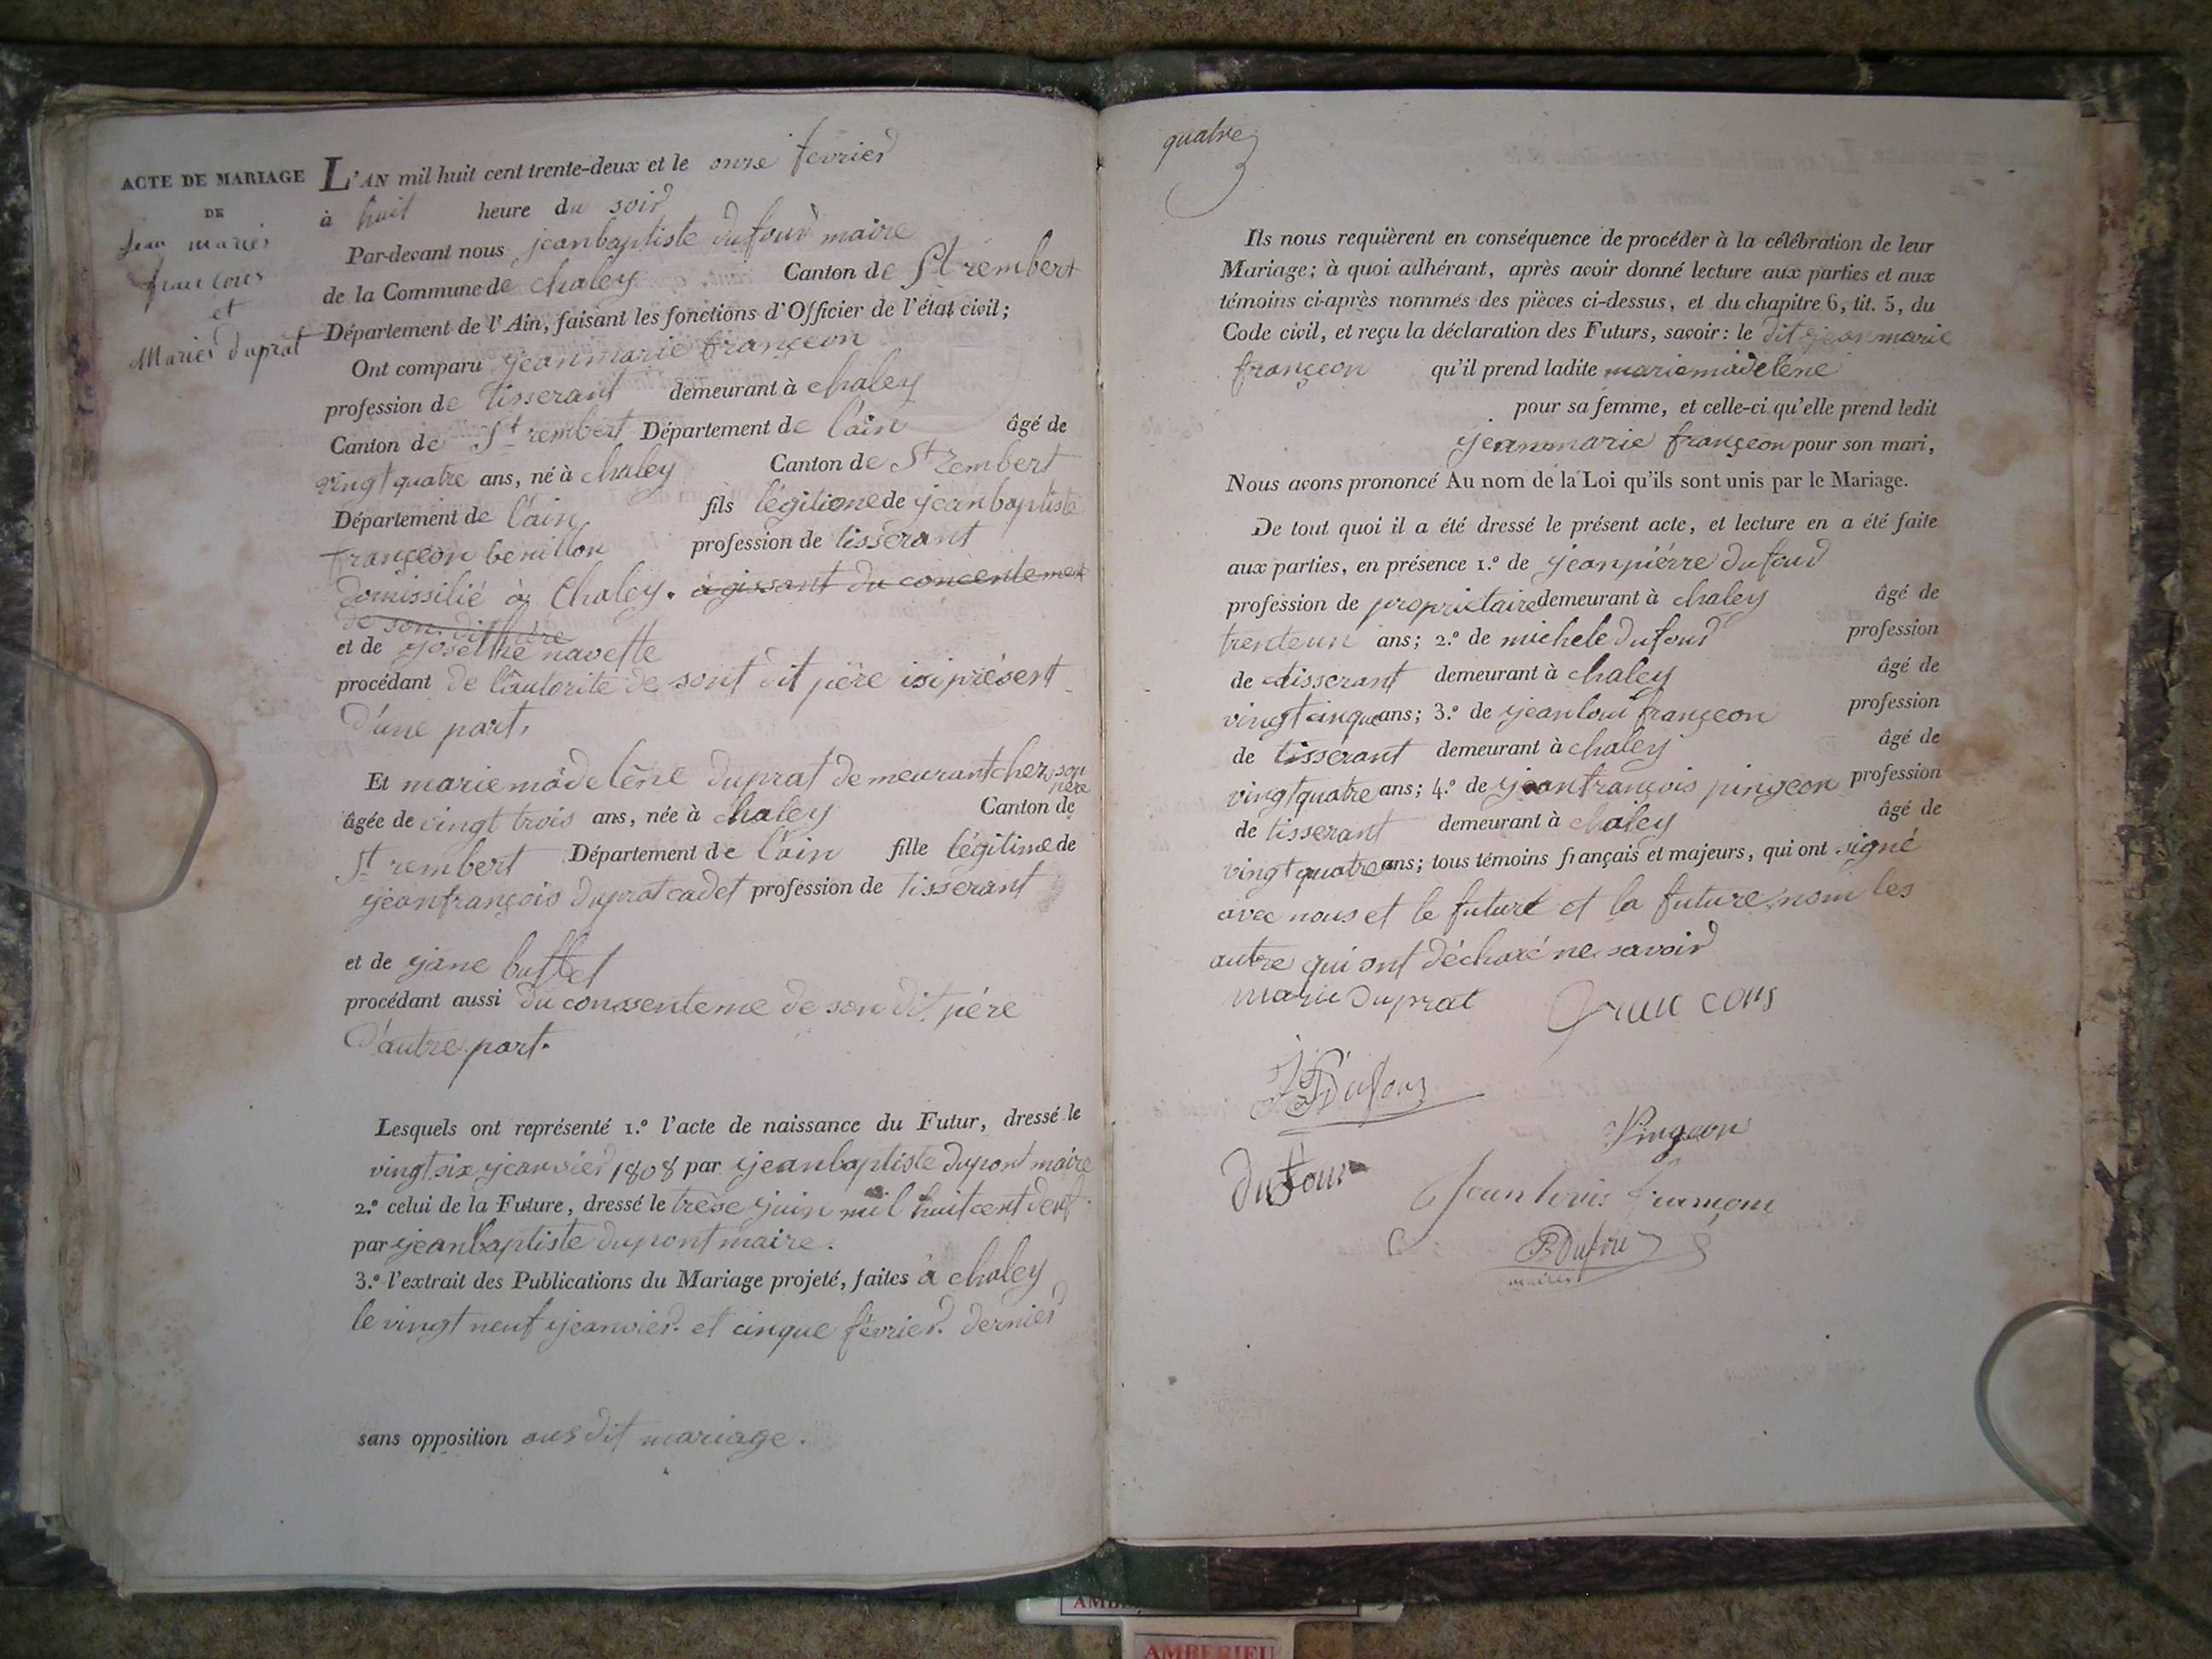 ACTE DE MARIAGE
DE
Jean marie
francons
et
Marie duprat
L'AN mil huit cent trente-deux et le onze fevrier
à huit heure du soir
Par-devant nous jeanbaptiste dufour maire
de la Commune de chaley Canton de St rembert
Département de l'Ain, faisant les fonctions d'Officier de l'état civil;
Ont comparu jeanmarie françeon
profession de tisserant demeurant à chaley
Canton de St rembert Département de l'ain âgé de
vingt quatre ans, né à chaley Canton de St rembert
Département de l'ain fils légitime de jeanbaptiste
françeon benillon profession de tisserant
domissilié à Chaley. agissant du concentement
de son dit père
et de josethe navette
procédant de l'autorite de sont dit père isi présent
d'une part,
Et marie madelène duprat demeurant chez son
père
âgée de vingt trois ans, née à chaley Canton de
St rembert Département de l'ain fille légitime de
jeanfrançois duprat cadet profession de tisserant
et de jane buffet
procédant aussi du conssenteme de son dit père
D'autre part.
Lesquels ont représenté 1.º l'acte de naissance du Futur, dressé le
vingt six jeanvier 1808 par jeanbaptiste dupont maire
2.º celui de la Future, dressé le trese juin mil huit cent
par jeanbaptiste dupont maire.
3.º l'extrait des Publications du Mariage projeté, faites à chaley
le vingt neuf jeanvier. et cinque février. dernier
sans opposition aus dit mariage.
quatre
Ils nous requièrent en conséquence de procéder à la célébration de leur
Mariage; à quoi adhérant, après avoir donné lecture aux parties et aux
témoins ci-après nommés des pièces ci-dessus, et du chapitre 6, tit. 5, du
Code civil, et reçu la déclaration des Futurs, savoir: le dit jeanmarie
françeon qu'il prend ladite mariemadelene
pour sa femme, et celle-ci qu'elle prend ledit
jeanmarie françeon pour son mari,
Nous avons prononcé Au nom de la Loi qu'ils sont unis par le Mariage.
De tout quoi il a été dressé le présent acte, et lecture en a été faite
aux parties, en présence 1.º de jeanpiérre dufour
profession de propriétaire demeurant à chaley âgé de
trente un ans; 2.º de michele dufour profession
de tisserant demeurant à chaley âgé de
vingt cinque ans; 3.º de jeanloui françeon profession
de tisserant demeurant à chaley âgé de
vingt quatre ans; 4.º de jeanfrançois pingeon profession
de tisserant demeurant à chaley âgé de
vingt quatre ans; tous témoins français et majeurs, qui ont signé
avec nous et le future et la future nom les
autre qui ont déclaré ne savoir
marie Duprat francons
JP Dufour
Pingeon
Dufour
Jean louis
B Dufour
maire
AMBERIEU